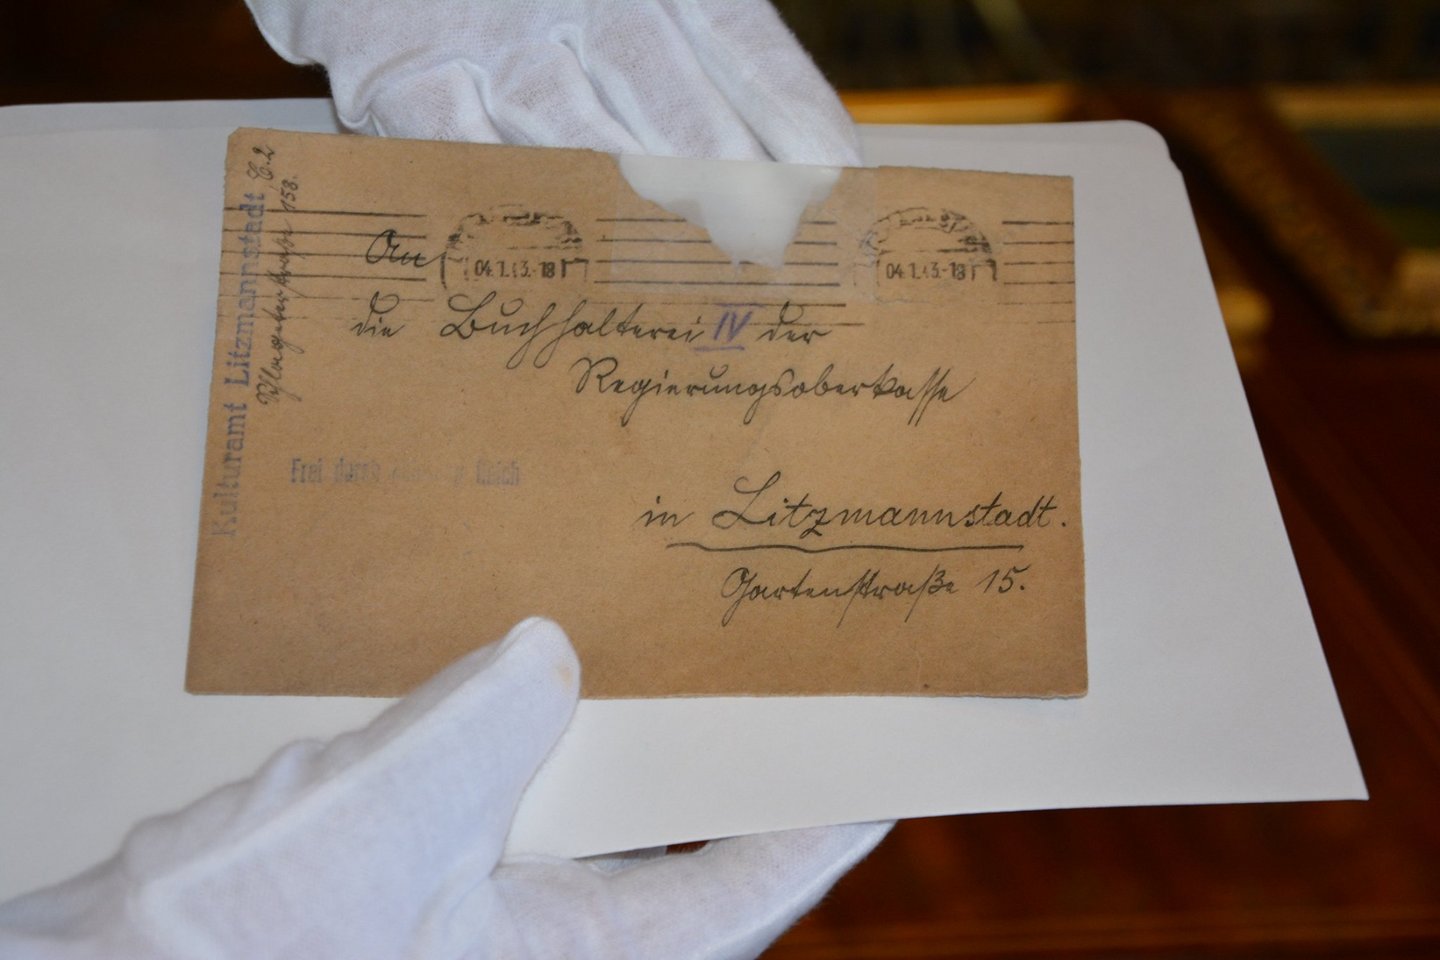 Kulturamt Litzmannstadt C.2
158.
04.1.43.-18
04.1.43.-18
An
die Buchhalterei IV der
Regierungsoberkasse
Frei durch Reich
in Litzmannstadt.
Gartenstraße 15.